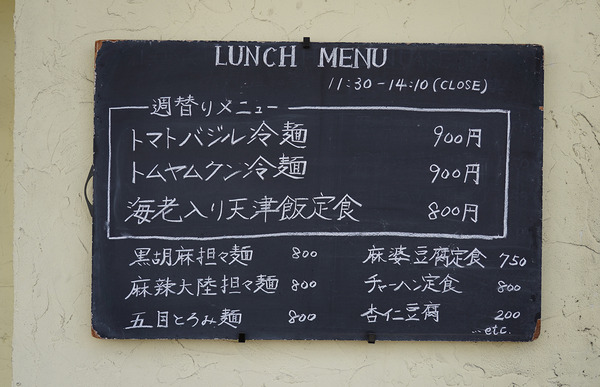 LUNCH MENU
11:30-14:10 (CLOSE)
週替りメニュー
トマトバジル冷麺 900円
トムヤムクン冷麺 900円
海老入り天津飯定食 800円
黒胡麻担々麺 800
麻辣大陸担々麺 800
五目とろみ麺 800
麻婆豆腐定食 750
チャーハン定食 800
杏仁豆腐 200
...etc.